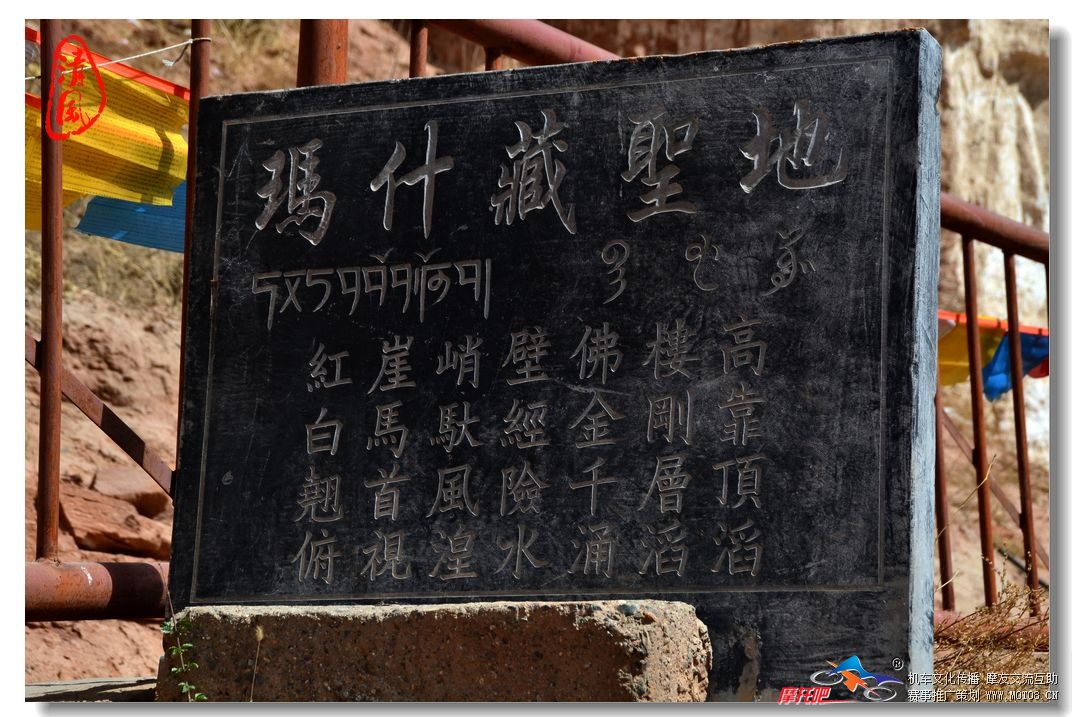 瑪什藏聖地
紅崖峭壁佛樓高
白馬馱經金剛靠
翹首風險千層頂
俯視湟水涌滔滔
摩托吧
®
机车文化传播 摩友交流互助
赛事推广策划 WWW.MOTO8.COM